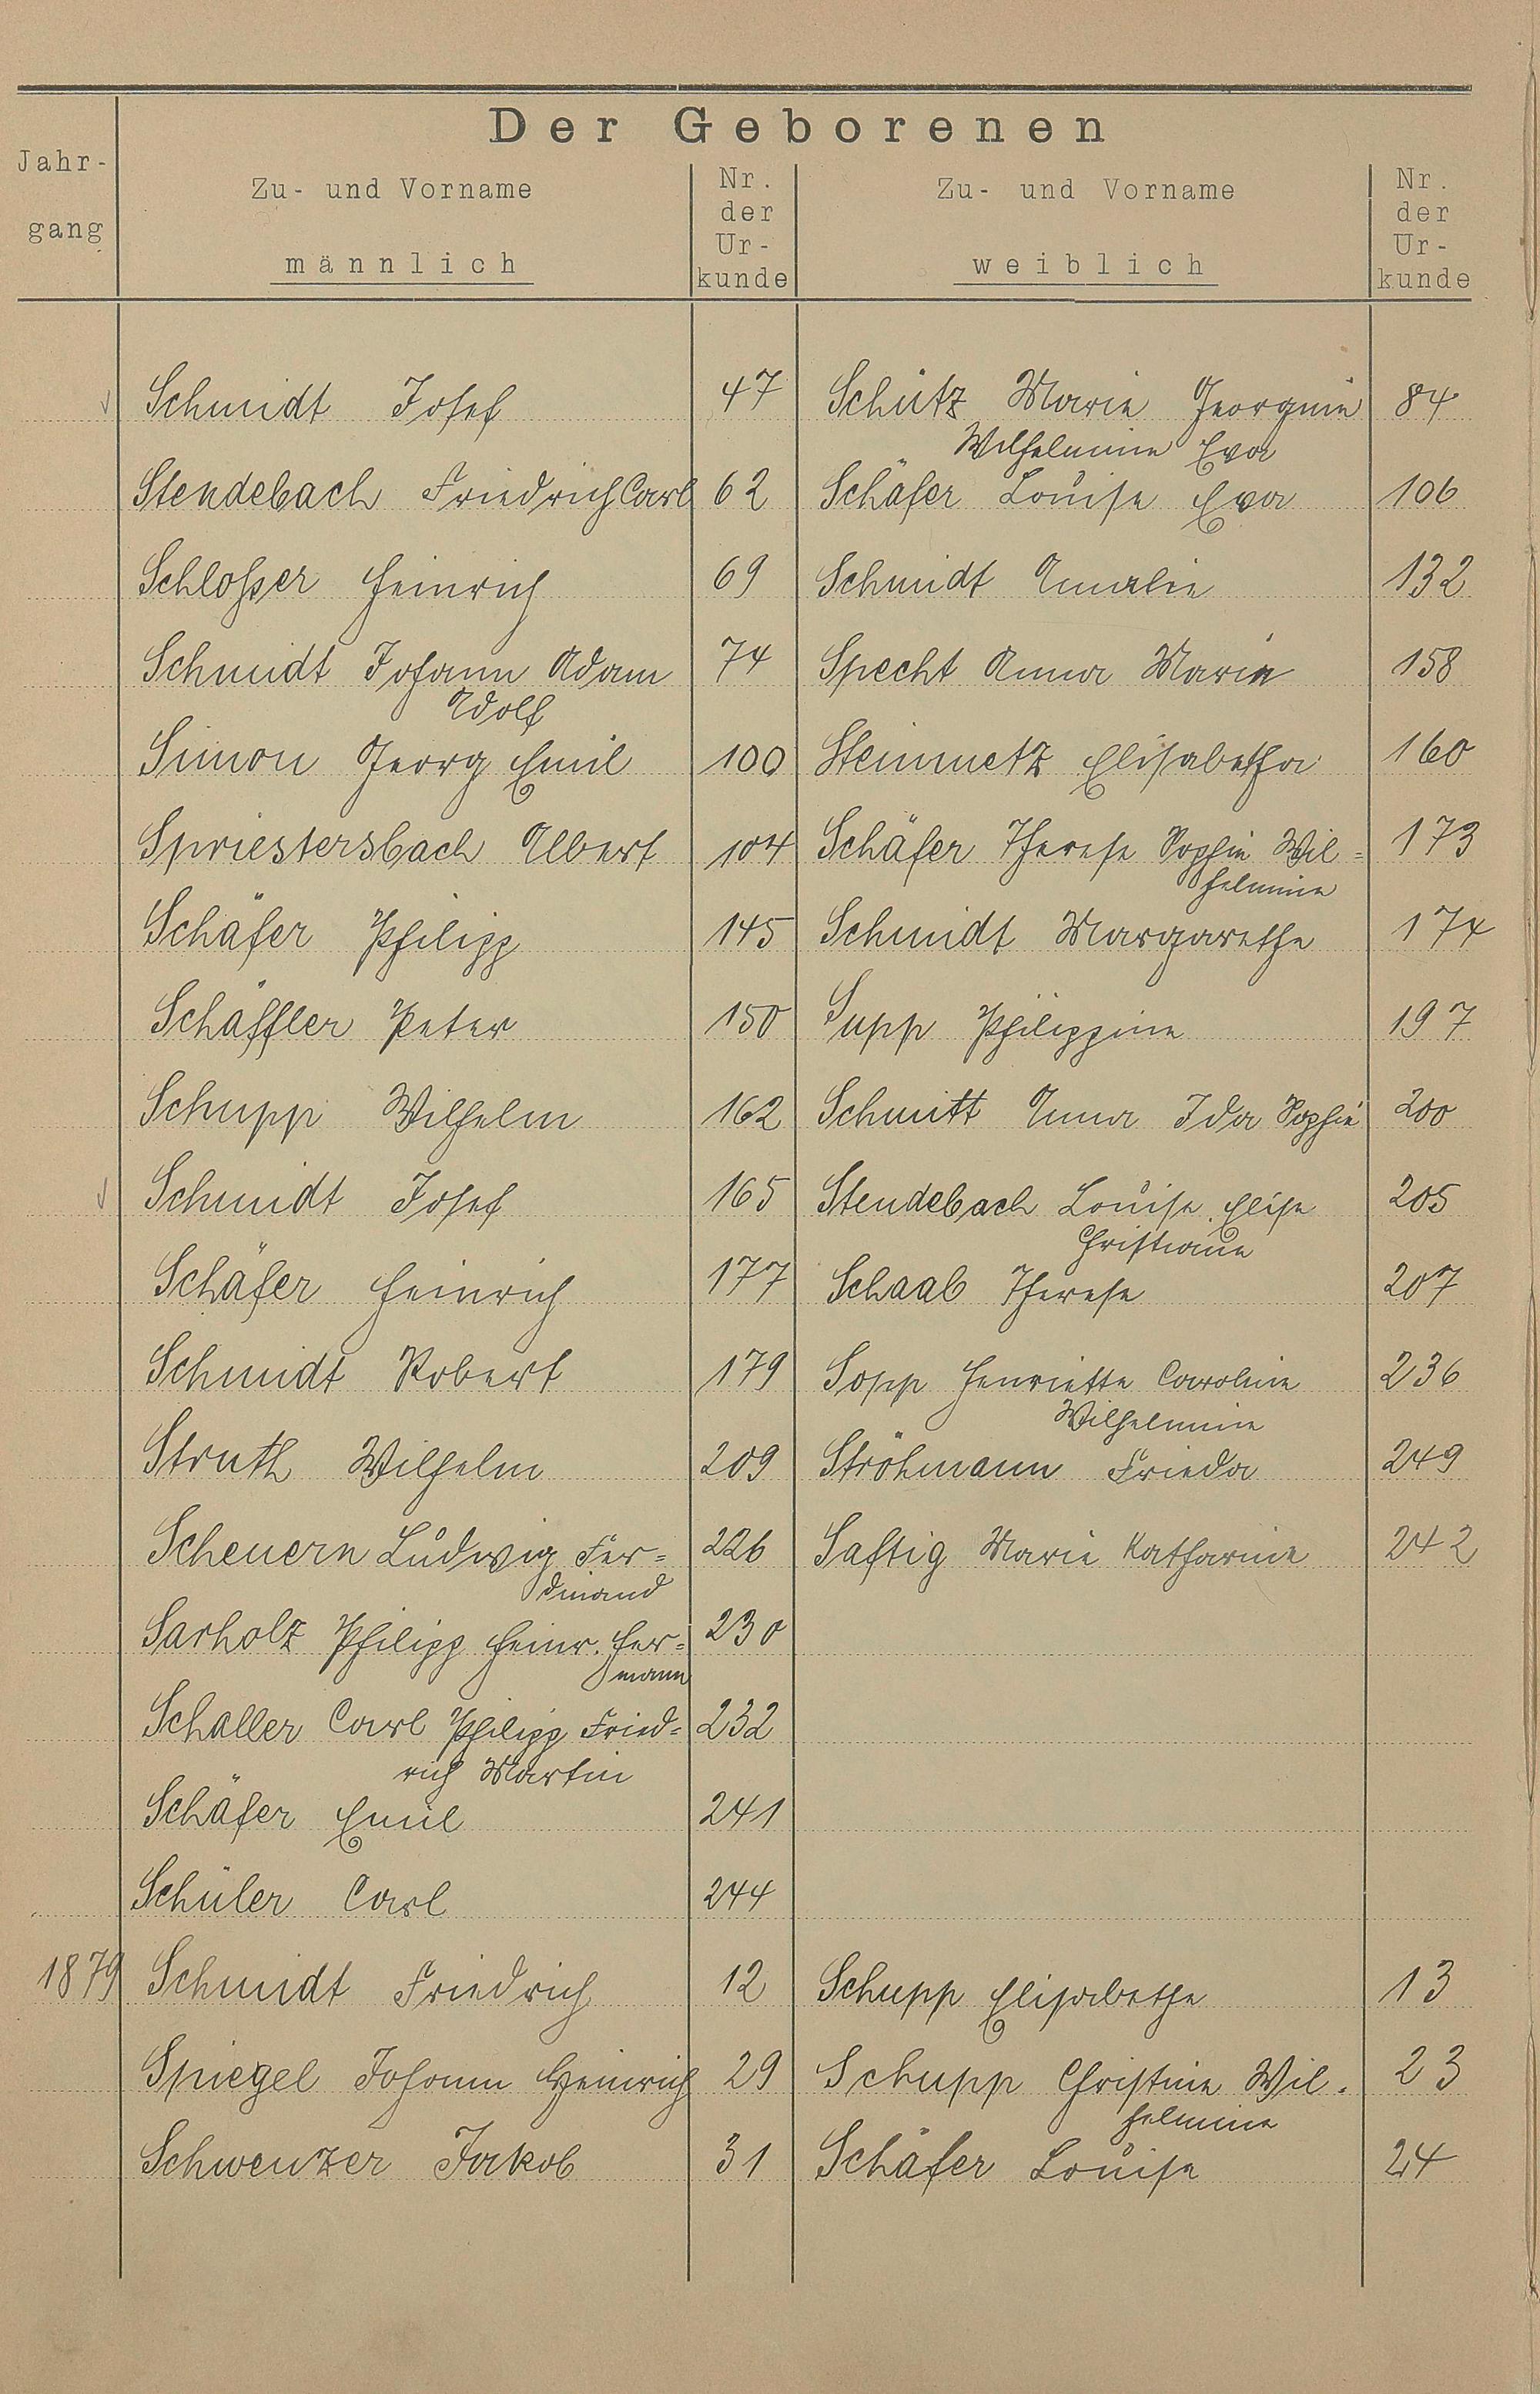 Der Geborenen
Jahr-
gang
Zu- und Vorname
männlich
Nr.
der
Ur-
kunde
Zu- und Vorname
weiblich
Nr.
der
Ur-
kunde
Schmidt Josef 47 Schütz Marie Georgine 84
Wilhelmine Eva
Stendebach Friedrich Carl 62 Schäfer Louise Eva 106
Schloßer Heinrich 69 Schmidt Amalie 132
Schmidt Johann Adam 74 Specht Anna Maria 158
Adolf
Simon Georg Emil 100 Steinmetz Elisabetha 160
Spriestersbach Albert 104 Schäfer Therese Sophie Wil= 173
helmine
Schäfer Philipp 145 Schmidt Margarethe 174
Schäffler Peter 150 Supp Philippine 197
Schupp Wilhelm 162 Schmitt Anna Ida Sophie 200
Schmidt Josef 165 Stendebach Louise Elise 205
Christiane
Schäfer Heinrich 177 Schaab Therese 207
Schmidt Robert 179 Sopp Henriette Caroline 236
Wilhelmine
Struth Wilhelm 209 Ströhmann Frieda 249
Scheuern Ludwig Fer= 226 Saftig Marie Katharine 242
dinand
Sarholz Philipp Heinr. Her= 230
mann
Schaller Carl Philipp Fried= 232
rich Martin
Schäfer Emil 241
Schüler Carl 244
1879 Schmidt Friedrich 12 Schupp Elisabethe 13
Spiegel Johann Heinrich 29 Schupp Christine Wil= 23
helmine
Schwenzer Jakob 31 Schäfer Louise 24